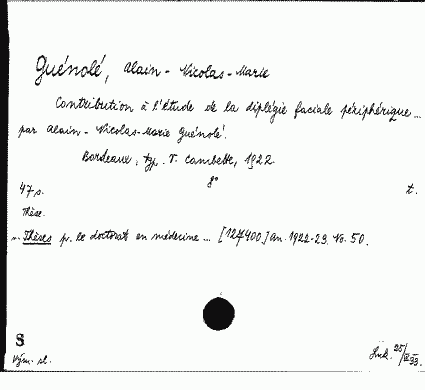 Guénolé, Alain-Nicolas-Marie
Contribution à l'étude de la diplégie faciale périphérique ...
par Alain-Nicolas-Marie Guénolé.
Bordeaux, typ. V. Cambette, 1922.
8°
47 s. t.
Thèse.
... Thèses pr. le doctorat en médecine ... [127400] An. 1922-23. No. 50.
S
Vým. sl.